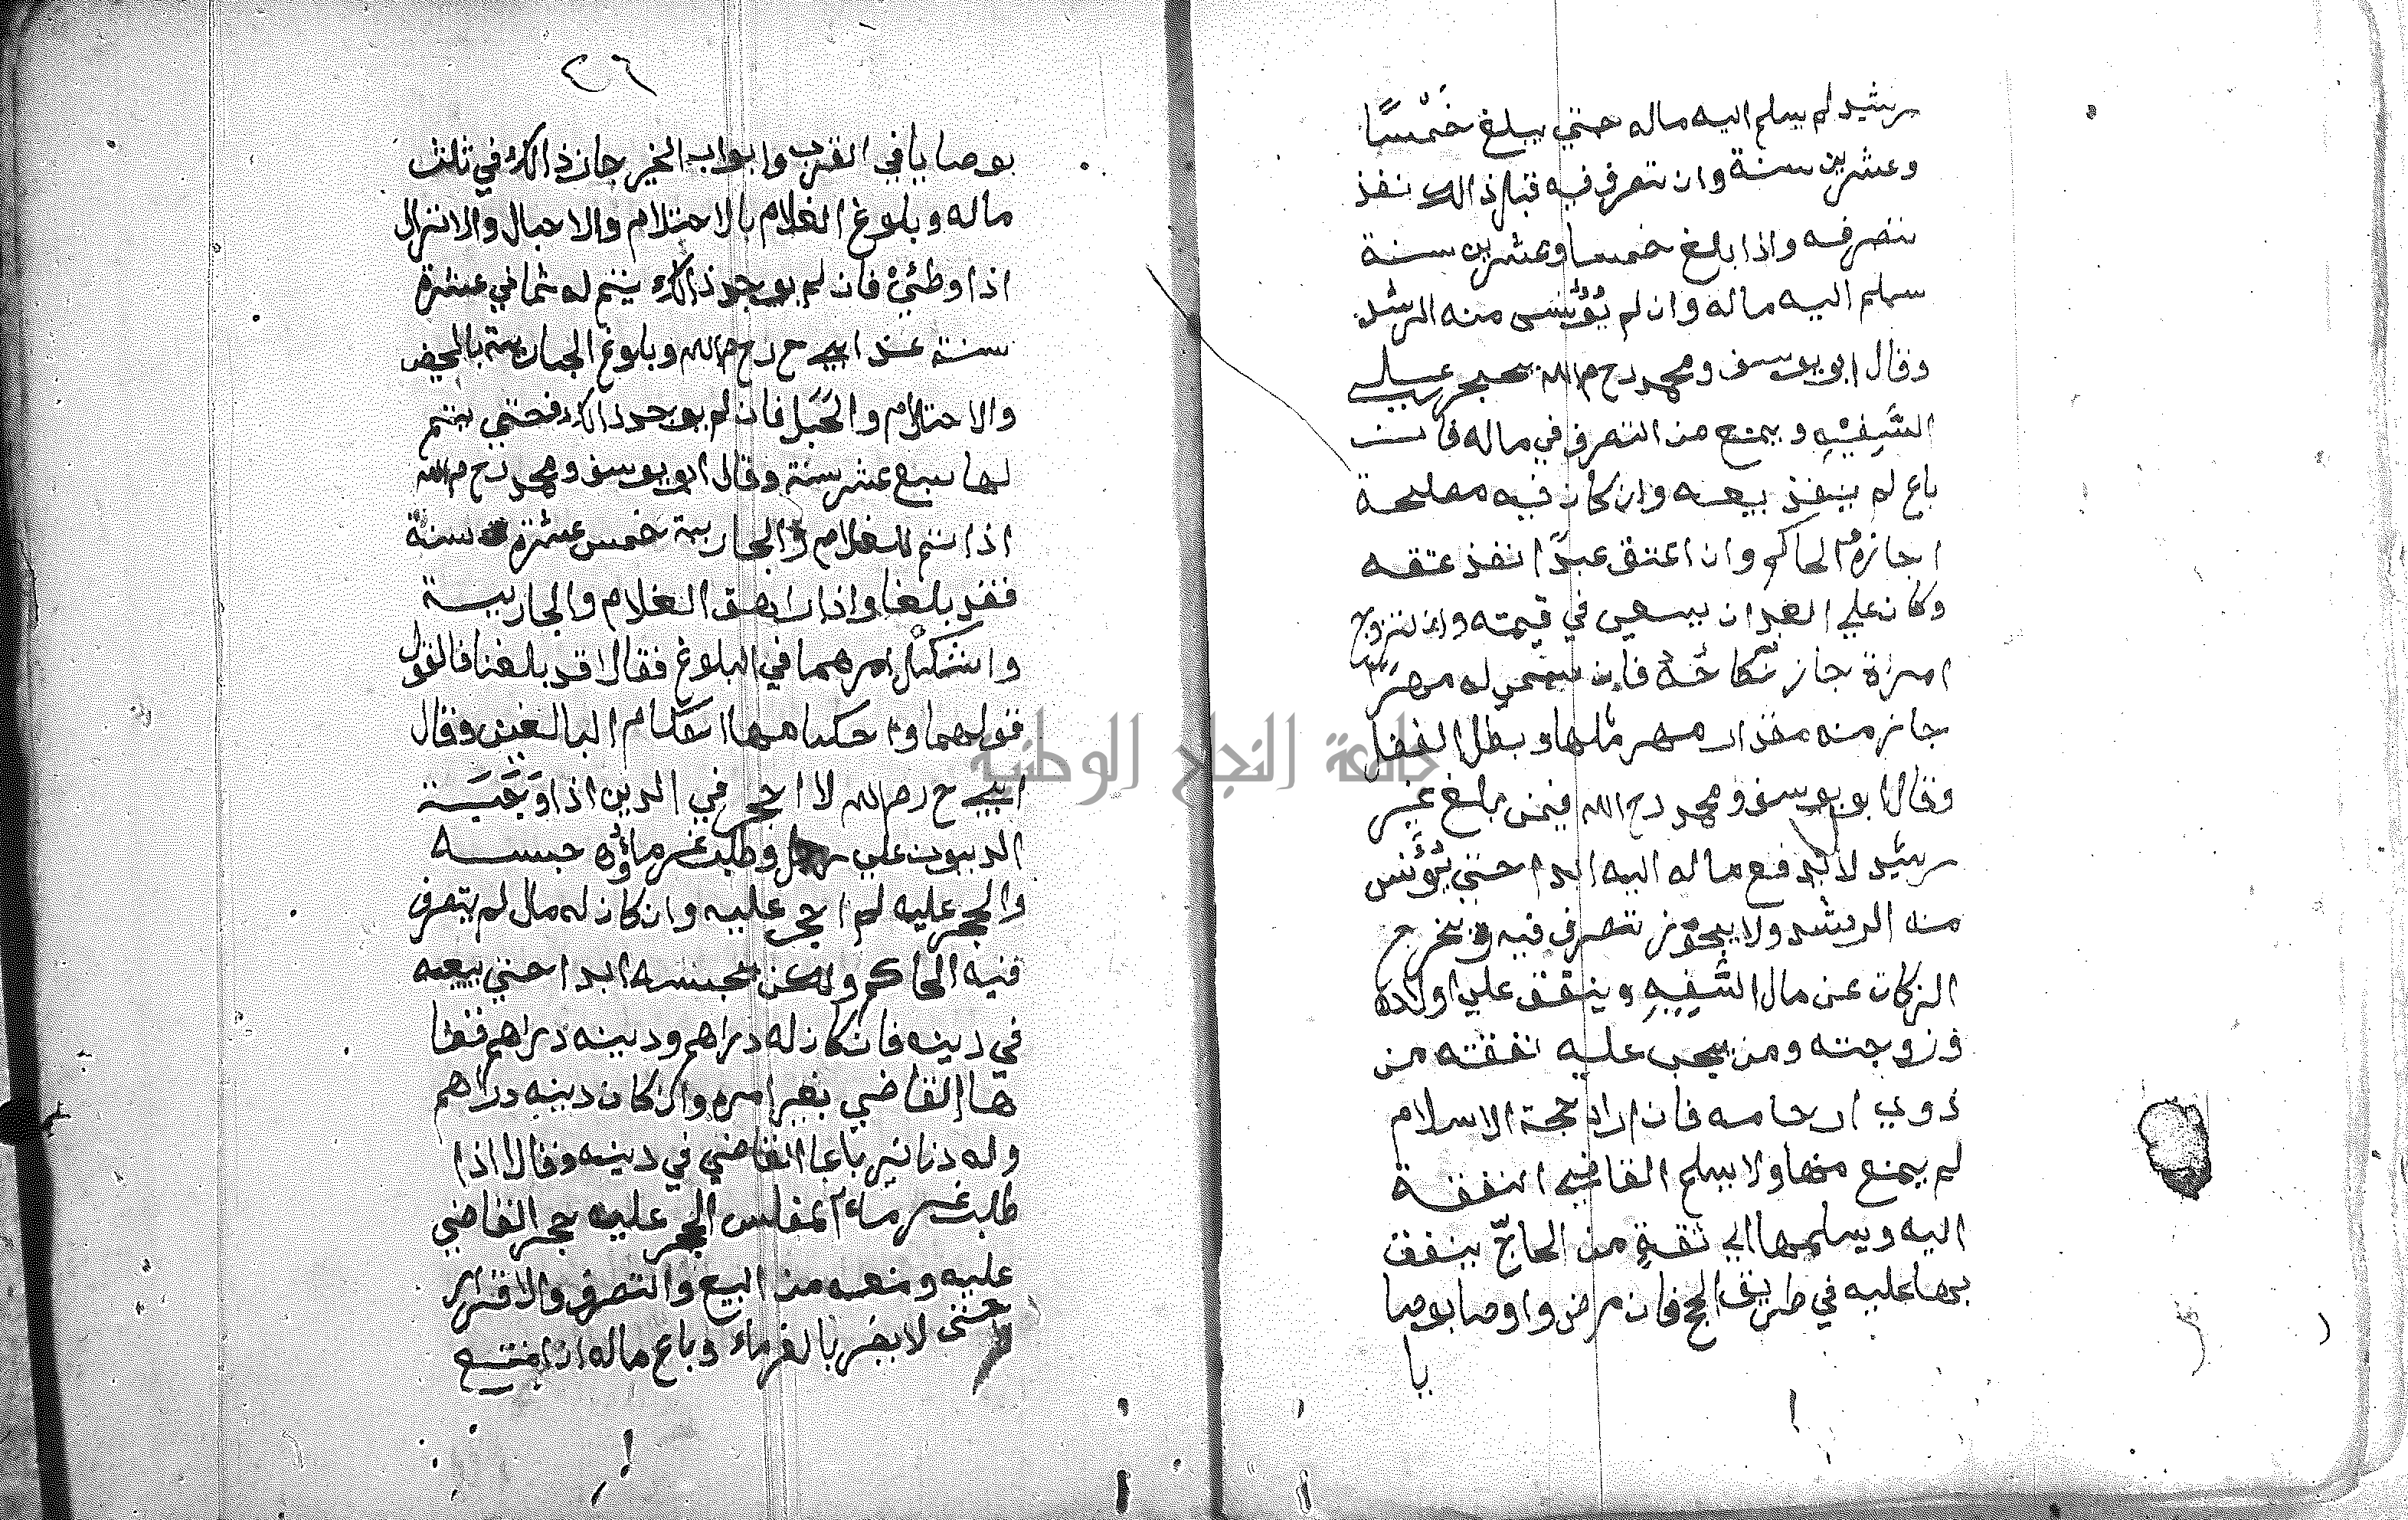 رشيد لم يسلم اليه ماله حتي يبلغ خَمْسًا
وعشرين سنة وان تصرف فيه قبل ذالك نفذ
تصرفه واذا بلغ خمسا وعشرين سنة
سلم اليه ماله وان لم يُؤنس منه الرشد
وقال ابو يوسف ومحمد رحمهم الله يحجر علي
السَّفِيْهِ ويمنع من التصرف في ماله فان
باع لم ينفذ بيعه وان كان فيه مصلحة
اجازه الحاكم وان اعتق عبدًا نفذ عتقه
وكان علي العبد ان يسعي في قيمته وان تزوج
امرءة جاز نكاحُهُ فان سمي له مهرًا
جاز منه مقدار مهر مثلها وبطل الفضل
وقال ابو يوسف ومحمد رح الله فيمن بلغ غير
رشيد لا يدفع ماله اليه ابدا حتي يُؤنَس
منه الرشد ولا يجوز تصرف فيه و يخرج
الزكات عن مال السَّفِيهِ وينفق علي اولاده
وزوجته ومن يجب عليه نفقته من
ذوي ارحامه فان اراد حجة الاسلام
لم يمنع منها ولا يسلم القاضي النفقة
اليه ويسلمها الي ثقةٍ من الحاجّ ينفق
بها عليه في طريق الحج فان مرض واوصا بوصا
يا
٢٦
بوصايا في القرب وابواب الخير جاز ذالك في ثلث
ماله وبلوغ الغلام بالاحتلام والاحبال والانزال
اذا وطئ فان لم يوجد ذالك يتم له ثماني عشرة
سنة عند ابي ح رحمه الله وبلوغ الجارية بالحيض
والاحتلام والحَبَل فان لم يوجد ذالك فحتي يتم
لها سبع عشر سنة وقال ابو يوسف ومحمد رحمهم الله
اذا تم للغلام والجارية خمس عشرة سنة
فقد بلغا واذا راهق الغلام والجارية
واشكل امرهما في البلوغ فقالا قد بلغنا فالقول
قولهما واحكامهما احكام البالغين وقال
ابي ح رحم الله لا احجر في الدين اذا وَجَبَت
الديون علي رجل وطلب غرماؤُه حبسه
والحجر عليه لم احجر عليه وان كان له مال لم يتصرف
فيه الحاكم ولكن يحبسه ابدا حتي يبيعه
في دينه فان كان له دراهم ودينه دراهم قضا
ها القاضي بغير امره وان كان دينه دراهم
وله دنانير باعها القاضي في دينه وقالا اذا
طلب غرماء المفلس الحجر عليه حجر القاضي
عليه ومنعه من البيع والتصرف والاقرار
حتى لا يضر بالغرماء وباع ماله ان امتنع
جامعة النجاح الوطنية